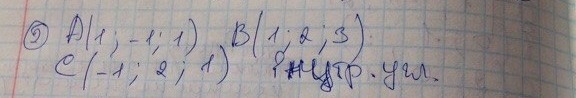 ② A(1; -1; 1) B(1; 2; 3)
C(-1; 2; 1) внутр. угл.